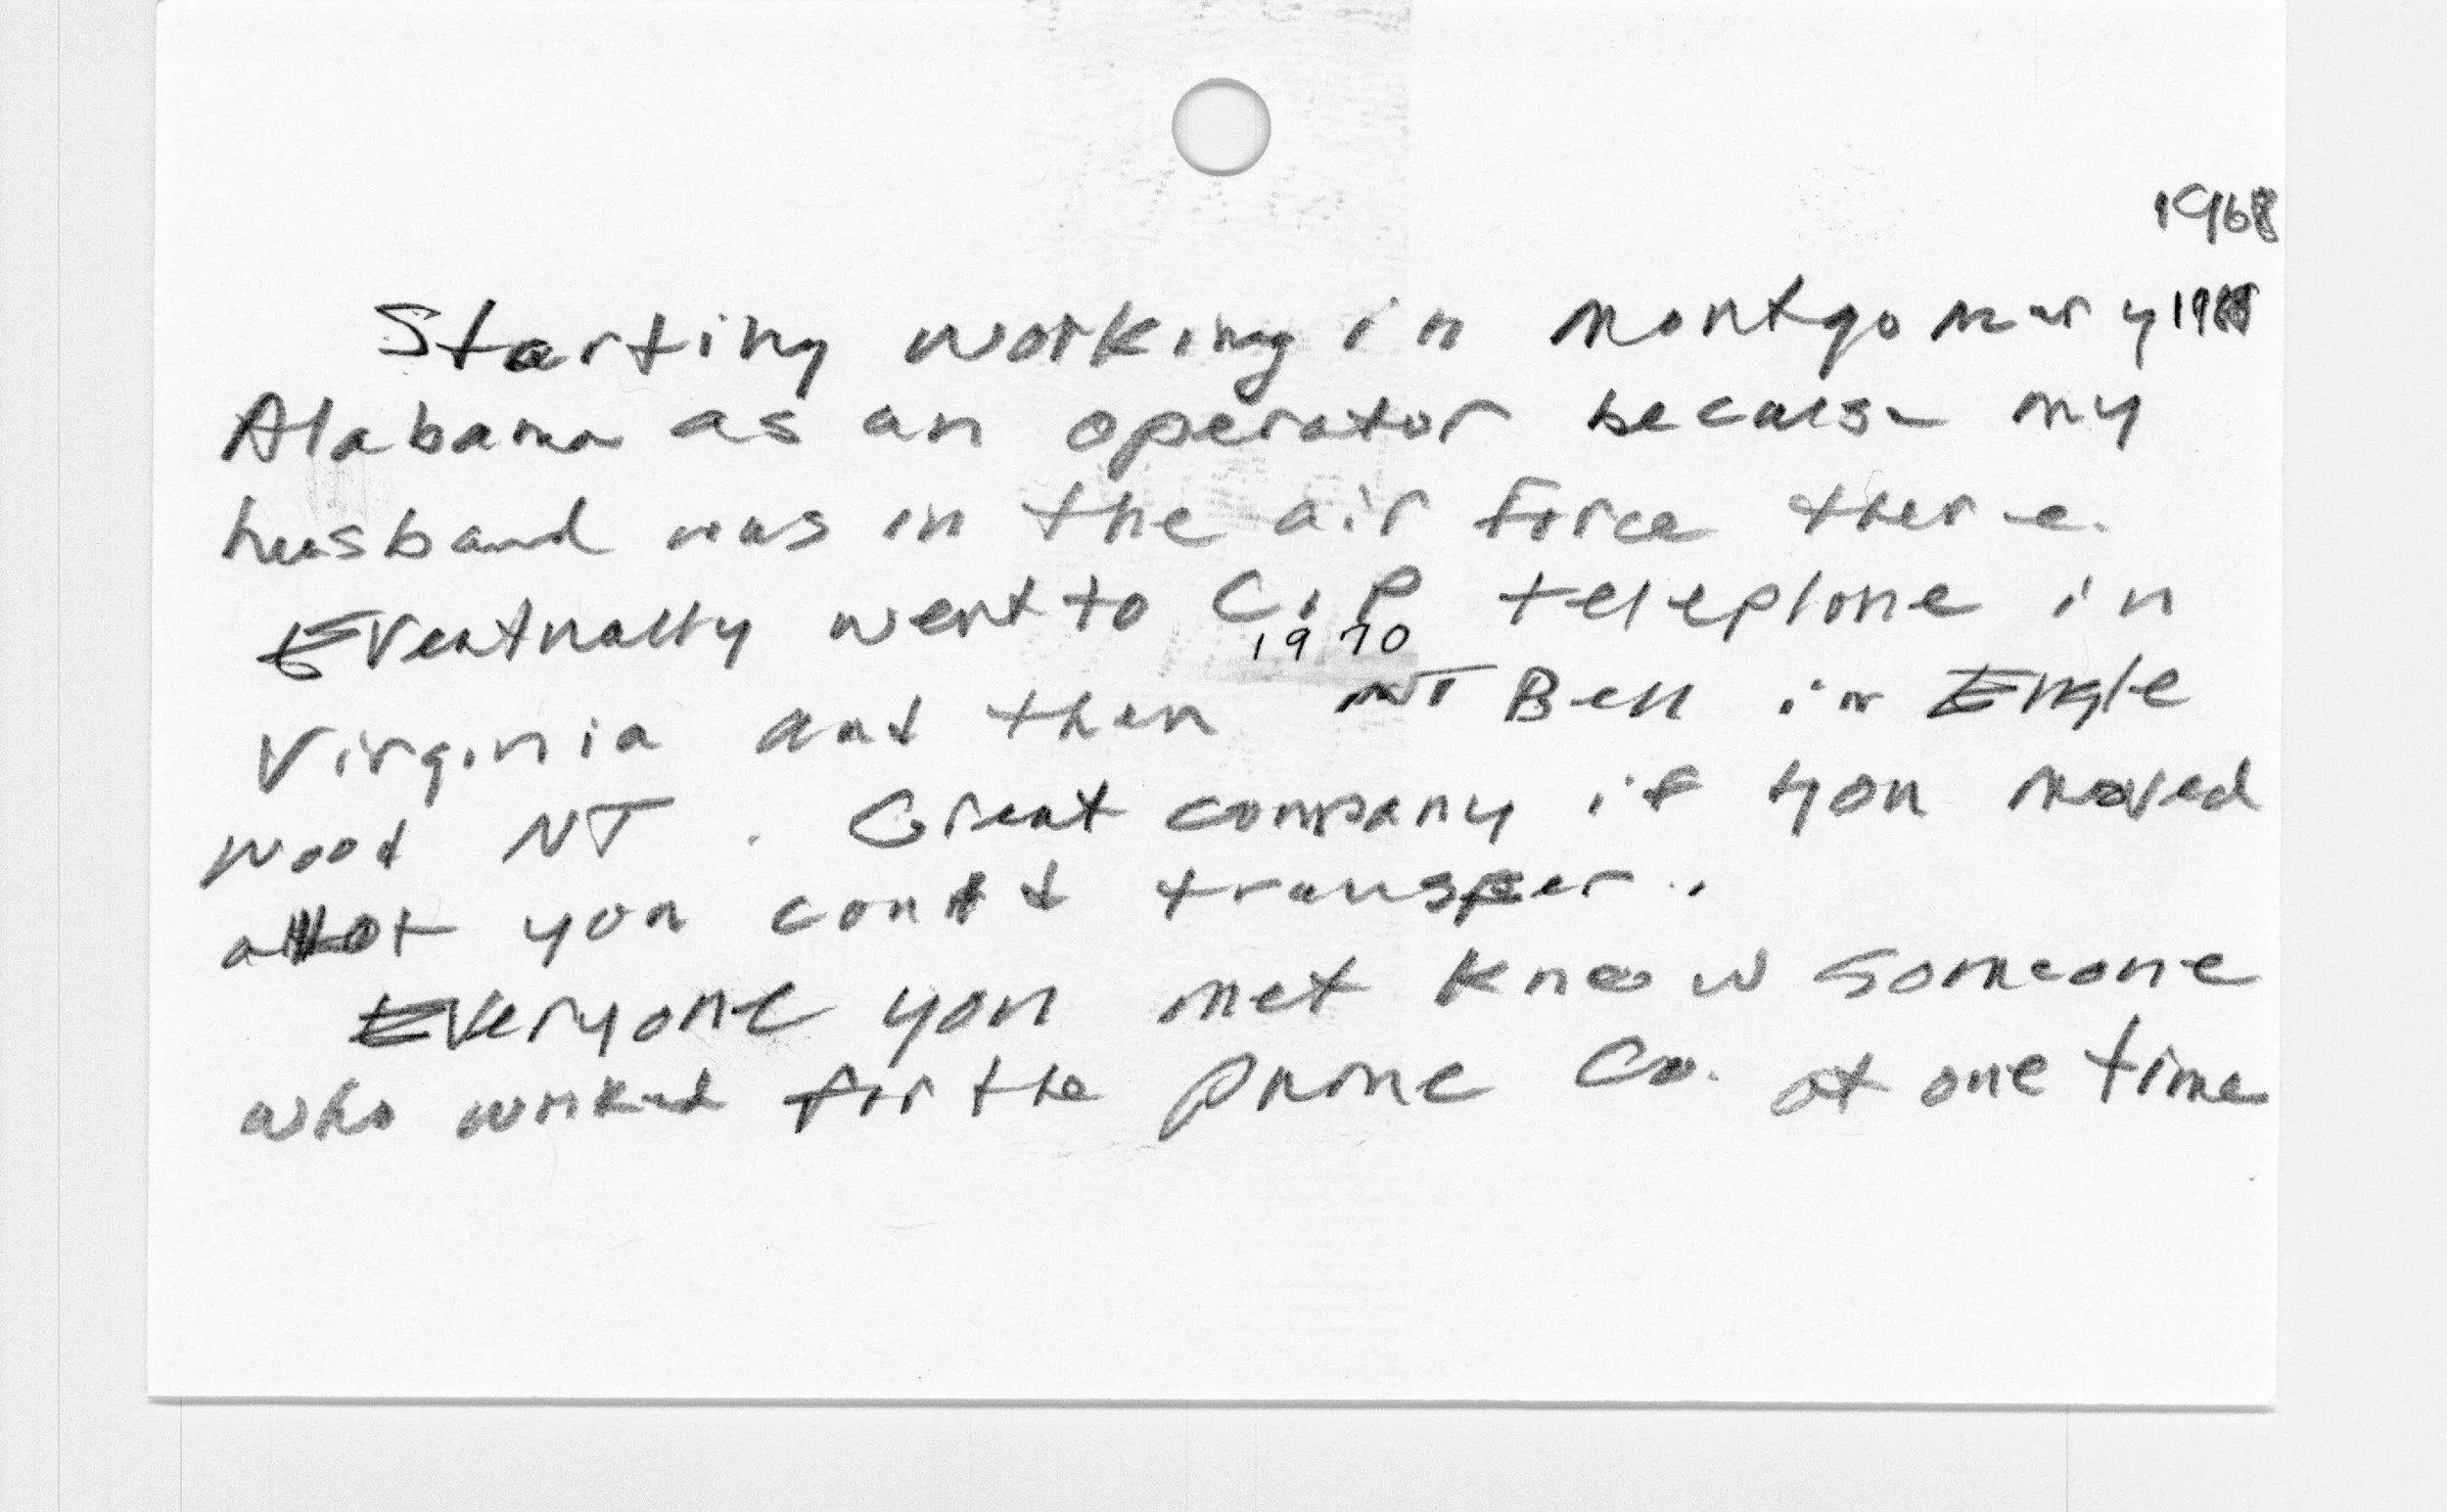 1968
Starting working in Montgomery
Alabama as an operator because my
husband was in the air force there.
Eventually went to C.P telephone in
1970
Virginia and then NJ Bell in Engle
wood NJ. Great company if you moved
alot you could transfer.
Everyone you met knew someone
who worked for the phone Co. at one time